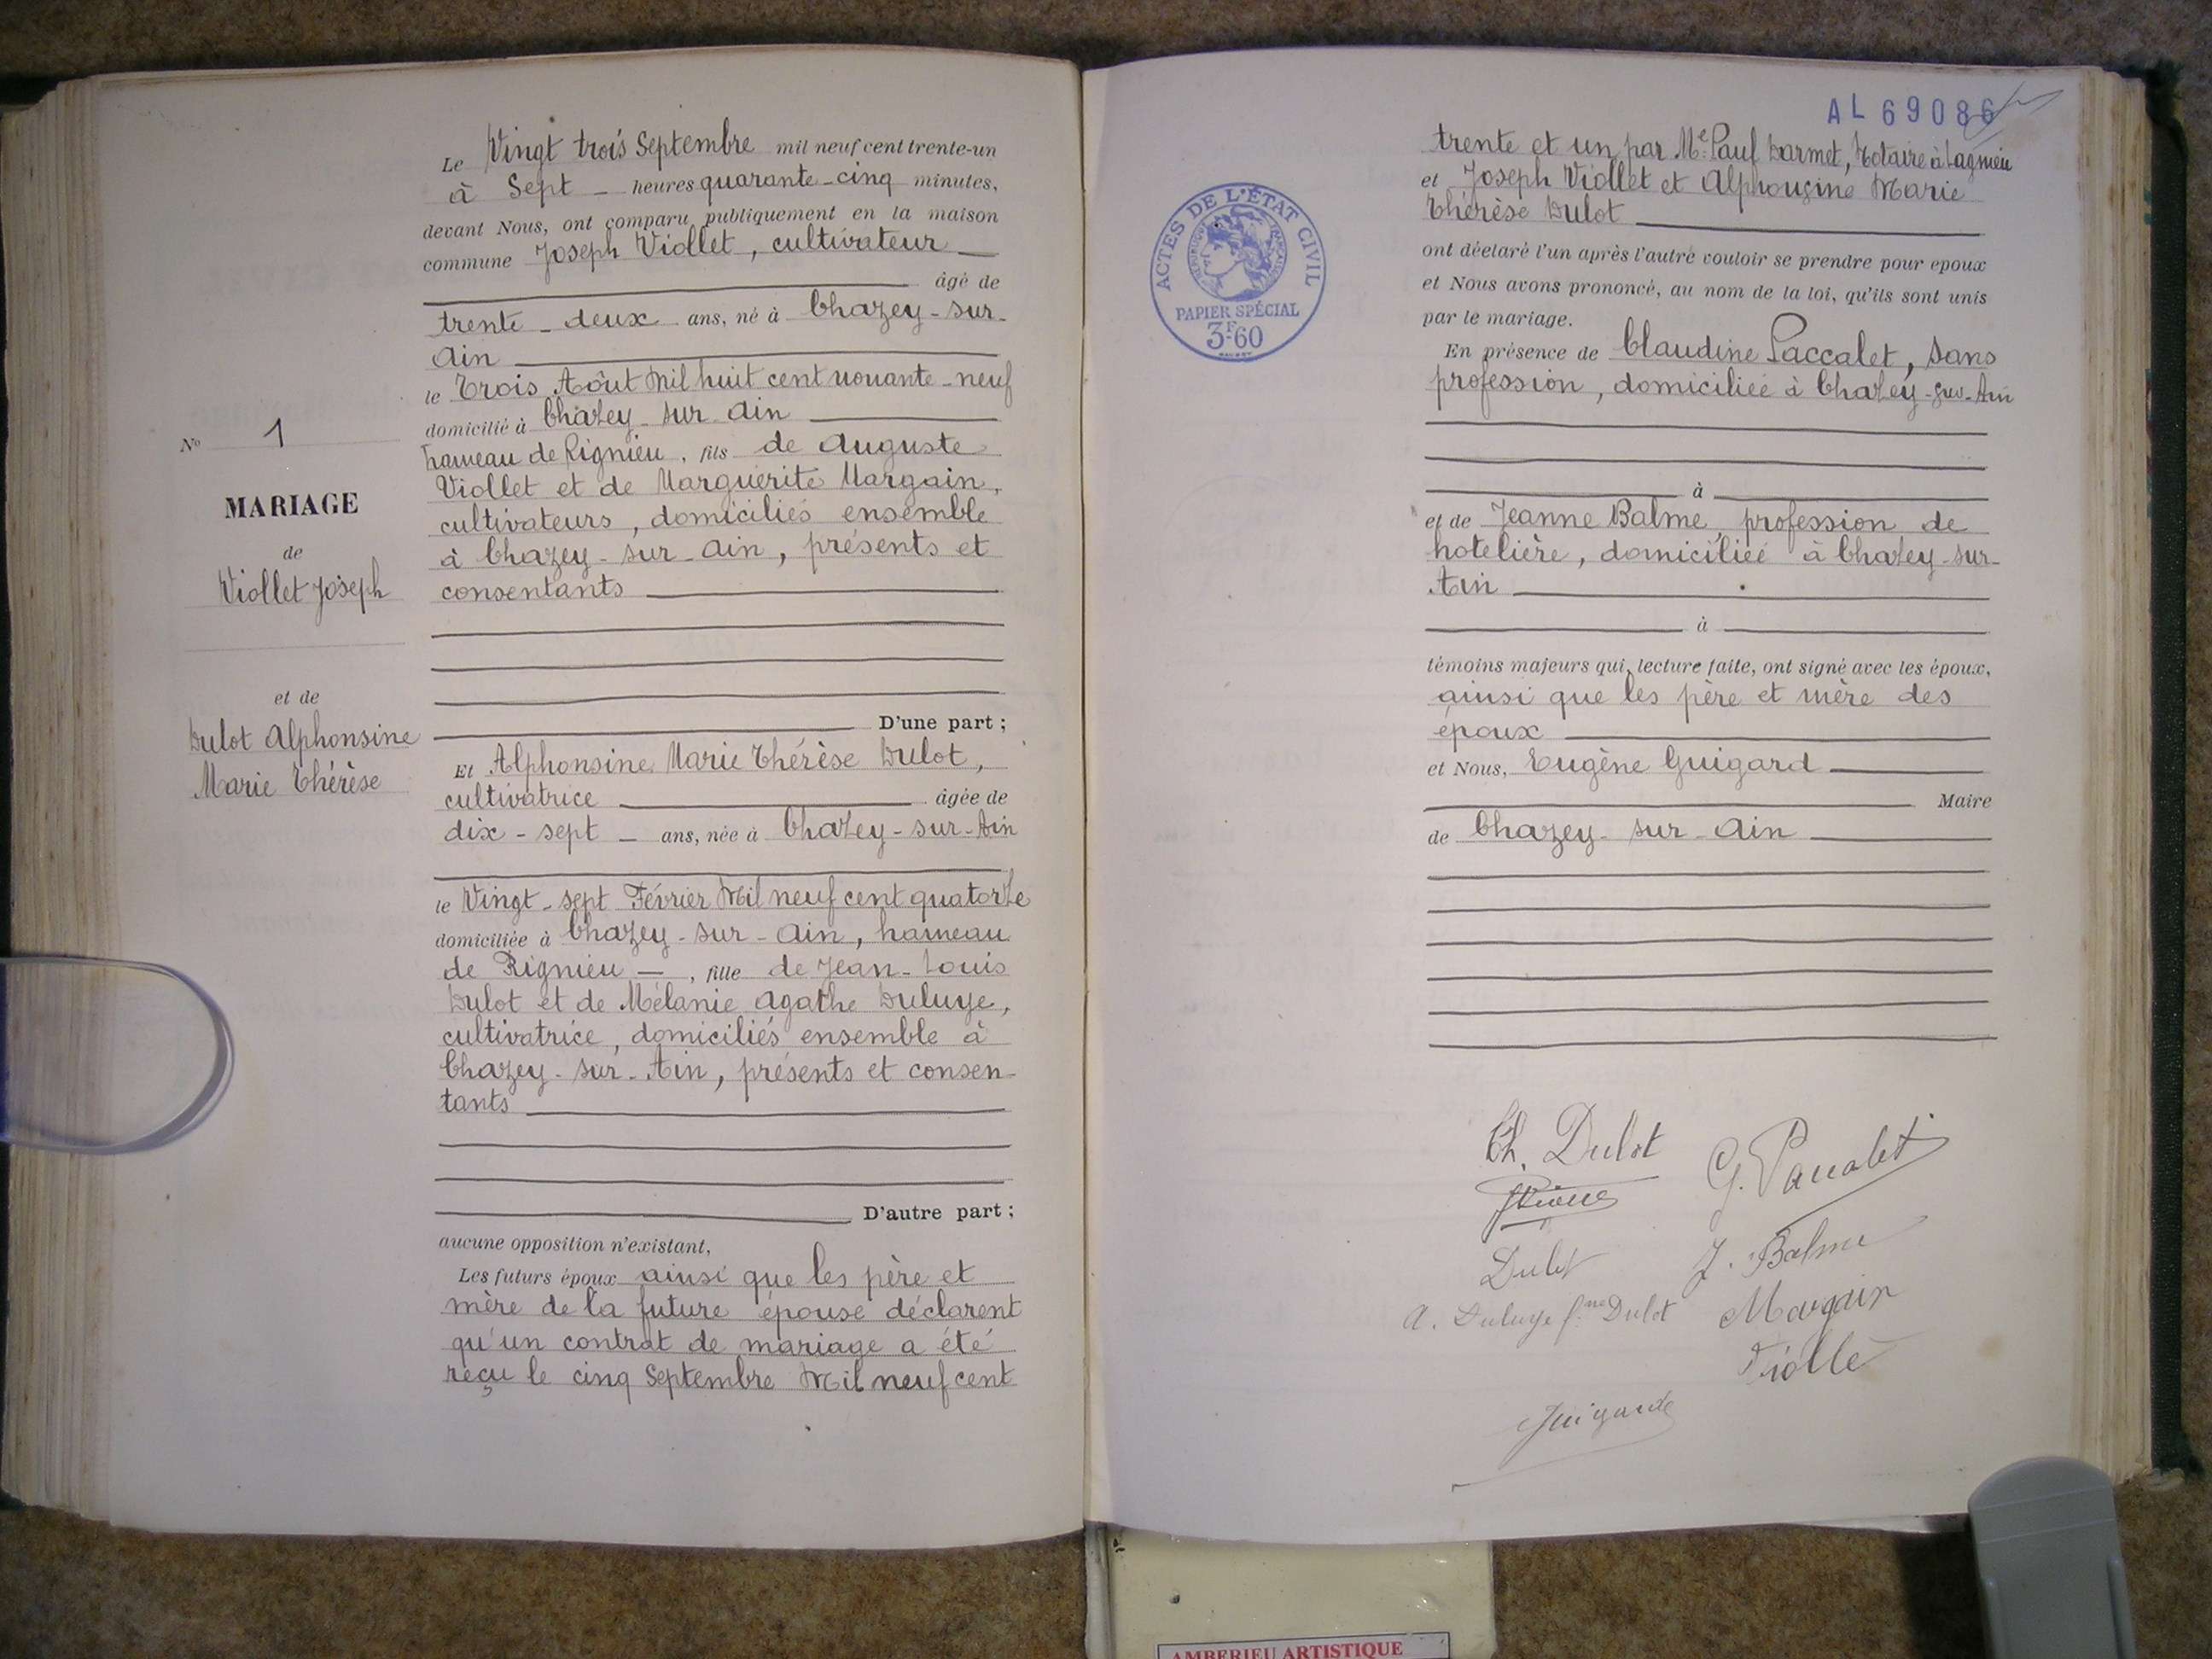 N° 1
MARIAGE
de
Viollet Joseph
et de
Dulot Alphonsine
Marie Thérèse
Le Vingt trois Septembre mil neuf cent trente-un
à Sept - heures quarante-cinq minutes,
devant Nous, ont comparu publiquement en la maison
commune Joseph Viollet, cultivateur
âgé de
trente-deux ans, né à Chazey-sur-
Ain
le Trois Aôut Mil huit cent nonante-neuf
domicilié à Chazey-sur-Ain
hameau de Rignieu, fils de Auguste
Viollet et de Marguerite Margain,
cultivateurs, domiciliés ensemble
à Chazey-sur-Ain, présents et
consentants
D'une part ;
Et Alphonsine Marie Thérèse Dulot,
cultivatrice âgée de
dix-sept - ans, née à Chazey-sur-Ain
le Vingt-sept Février Mil neuf cent quatorze
domiciliée à Chazey-sur-Ain, hameau
de Rignieu -, fille de Jean-Louis
Dulot et de Mélanie Agathe Duluye,
cultivatrice, domiciliés ensemble à
Chazey-sur-Ain, présents et consen-
tants
D'autre part ;
aucune opposition n'existant,
Les futurs époux ainsi que les père et
mère de la future épouse déclarent
qu'un contrat de mariage a été
reçu le cinq Septembre Mil neuf cent
AL 69086
ACTES DE L'ÉTAT CIVIL
RÉPUBLIQUE FRANÇAISE
PAPIER SPÉCIAL
3F60
trente et un par Me Paul Darmet, Notaire à Lagnieu
et Joseph Viollet et Alphonsine Marie
Thérèse Dulot
ont déclaré l'un après l'autre vouloir se prendre pour epoux
et Nous avons prononcé, au nom de la loi, qu'ils sont unis
par le mariage.
En présence de Claudine Paccalet, sans
profession, domiciliée à Chazey-sur-Ain
à
et de Jeanne Balme, profession de
hotelière, domiciliée à Chazey-sur-
Ain
à
témoins majeurs qui, lecture faite, ont signé avec les époux,
ainsi que les père et mère des
époux
et Nous, Eugène Guigard
Maire
de Chazey-sur-Ain
Th. Dulot
C. Paccalet
Dulot
J. Balme
A. Duluye fme Dulot
Margain
Violle
Guigard
AMBERIEU ARTISTIQUE